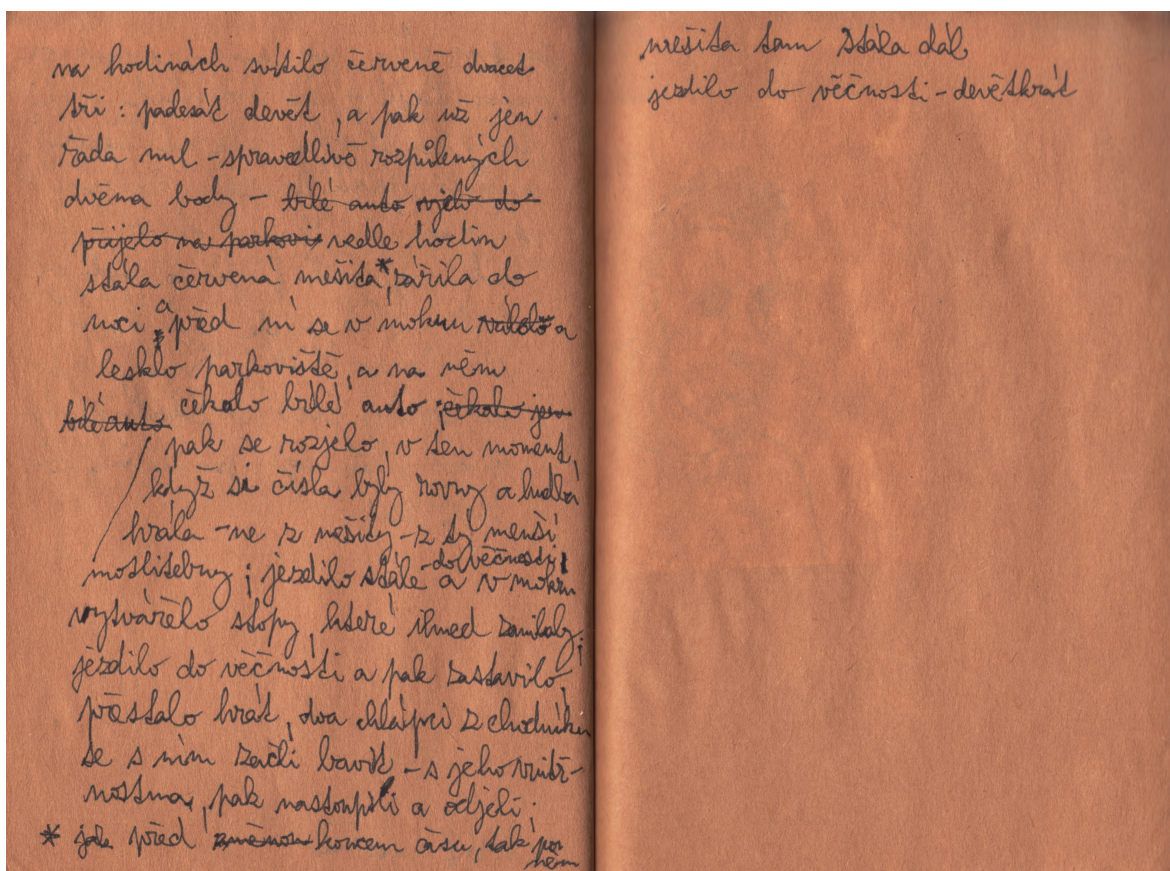 na hodinách svítilo červeně dvacet
tři : padesát devět, a pak už jen
řada nul - spravedlivě rozpůlených
dvěma body - bílé auto vjelo do
přijelo na parkoviš vedle hodin
stála červená mešita*, zářila do
noci a před ní se v mokru válelo a
lesklo parkoviště, a na něm
bílé auto čekalo bílé auto ; čekalo jen
pak se rozjelo, v ten moment,
když si čísla byly rovny a hudba
hrála - ne z mešity - z tý menší
motlitebny ; jezdilo stále - do věčnosti ! a v mokru
vytvářelo stopy, které ihned zanikaly ;
jezdilo do věčnosti a pak zastavilo,
přestalo hrát, dva chlápci z chodníku
se s ním začli bavit - s jeho vnitř-
nostma, pak nastoupili a odjeli ;
* jak před změnou koncem času, tak po
něm
mešita tam stála dál
jezdilo do věčnosti - devětkrát